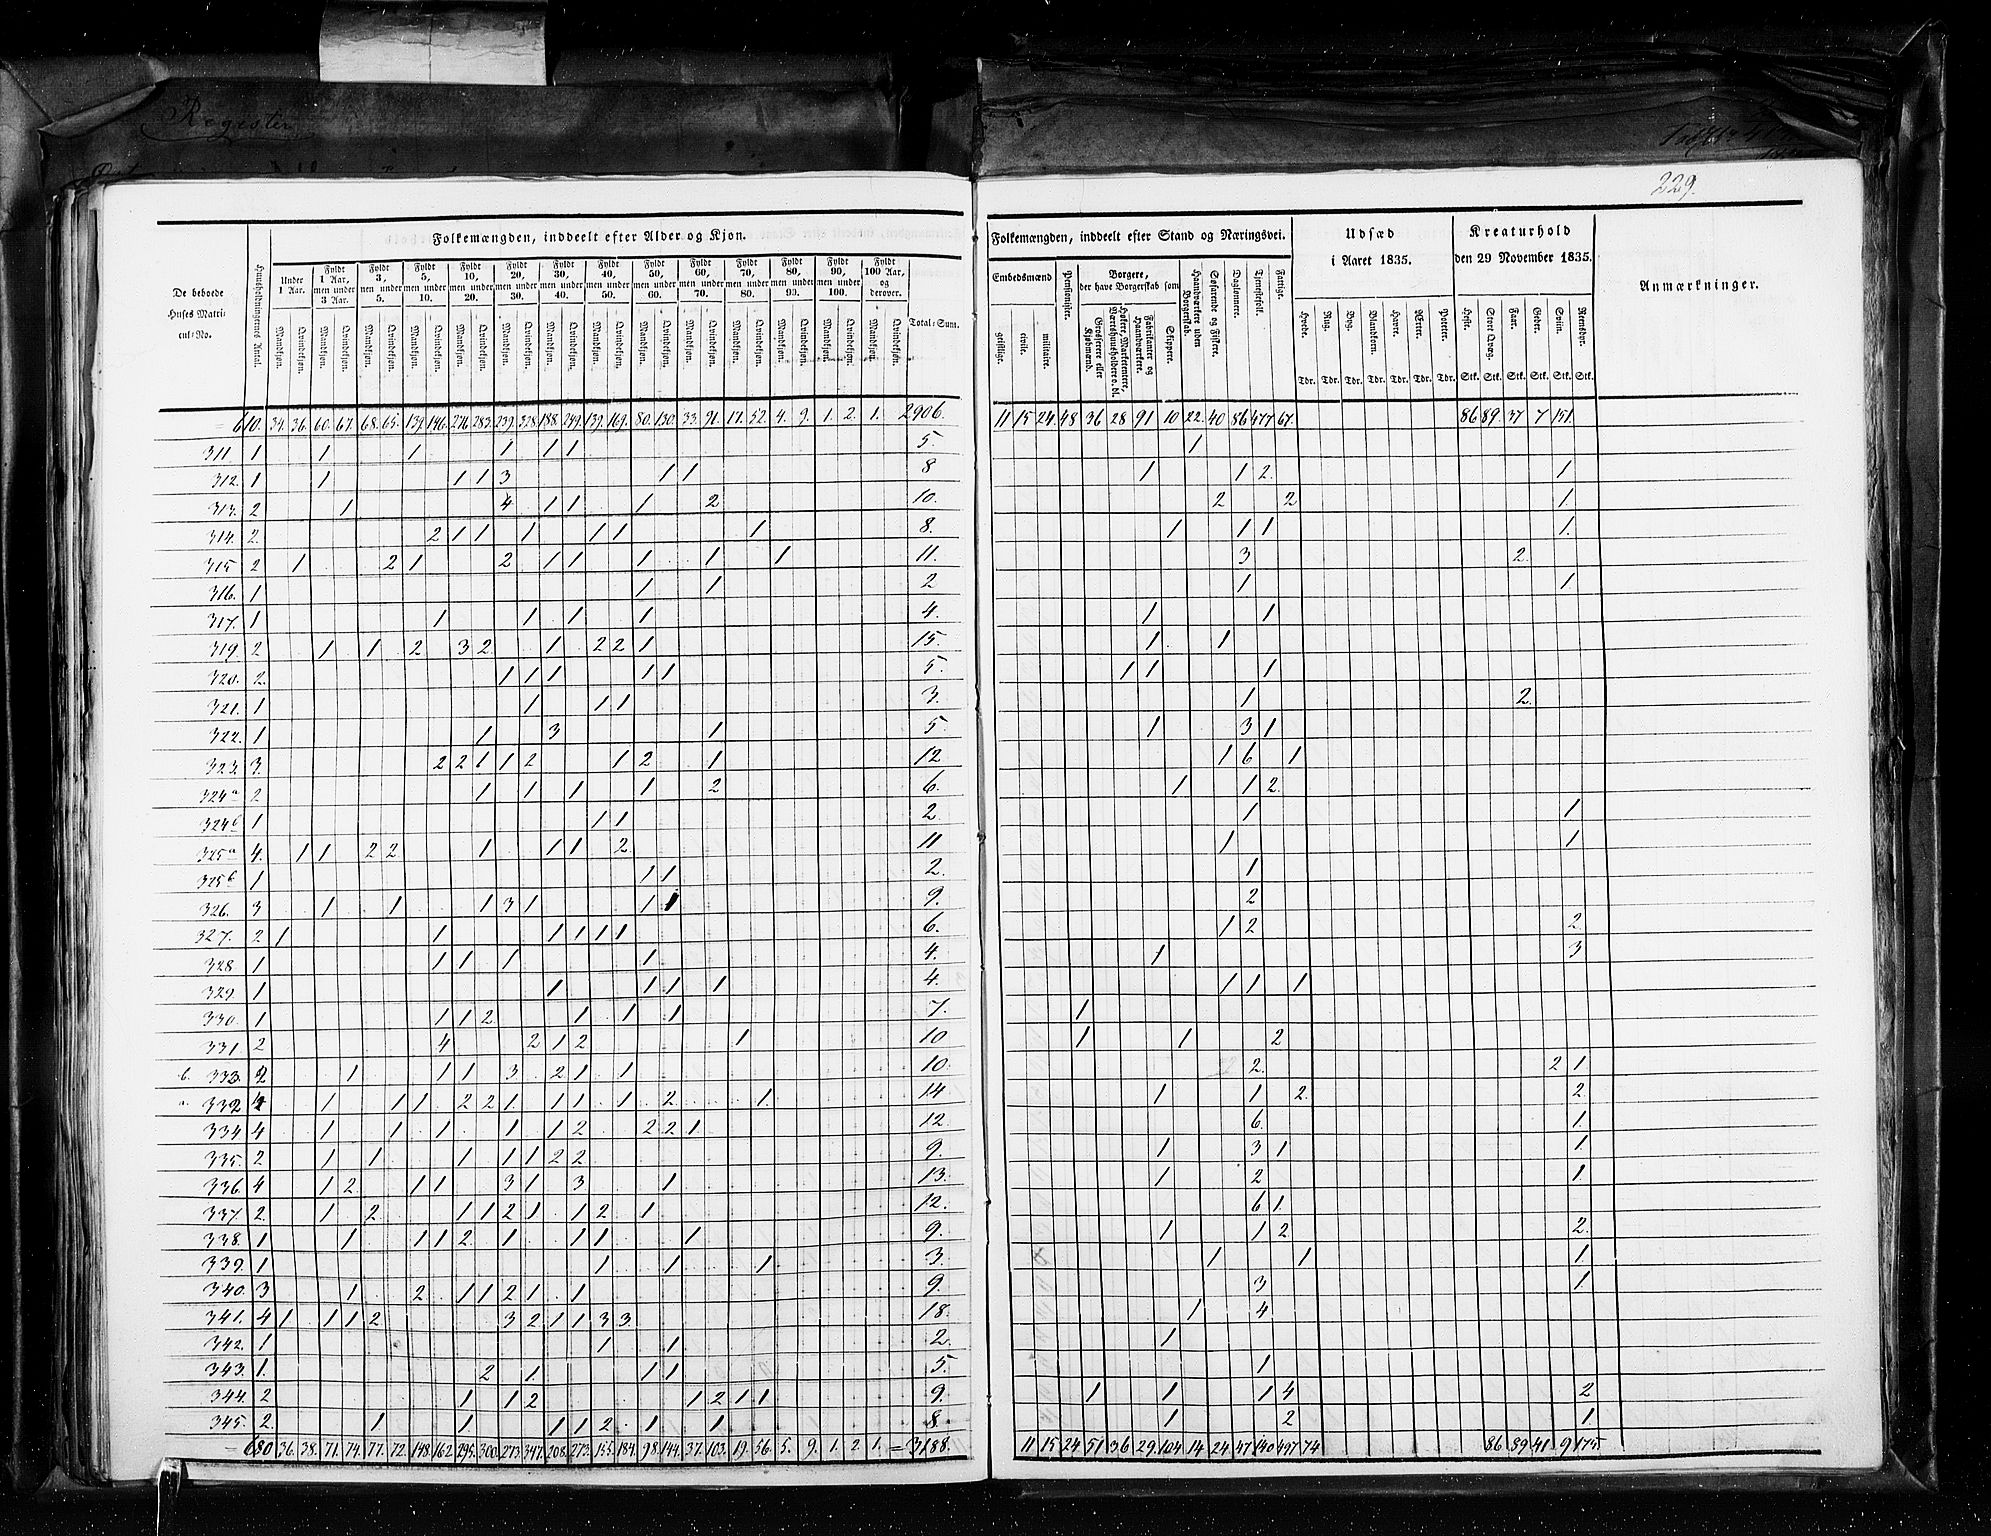 Register
229.
Folkemængden, inddeelt efter Alder og Kjøn.
De beboede Huses Matricul-No.
Huusholdningernes Antal.
Under 1 Aar.
Fyldt 1 Aar, men under 3 Aar.
Fyldt 3, men under 5.
Fyldt 5, men under 10.
Fyldt 10, men under 20.
Fyldt 20, men under 30.
Fyldt 30, men under 40.
Fyldt 40, men under 50.
Fyldt 50, men under 60.
Fyldt 60, men under 70.
Fyldt 70, men under 80.
Fyldt 80, men under 90.
Fyldt 90, men under 100.
Fyldt 100 Aar, og derover.
Mandkjøn. Qvindekjøn.
Total-Sum.
Folkemængden, inddeelt efter Stand og Næringsvei.
Embedsmænd
geistlige. civile. militaire.
Pensionister.
Borgere, der have Borgerskab som
Grosserere eller Kjøbmænd.
Høkere, Marketentere, Værtshuusholdere o. dl.
Fabrikanter og Haandværkere.
Skippere.
Haandværkere uden Borgerskab.
Søfarende og Fiskere.
Daglønnere.
Tjenestefolk.
Fattige.
Udsæd i Aaret 1835.
Hvede. Rug. Byg. Blandkorn. Havre. Ærter. Poteter.
Tdr. Tdr. Tdr. Tdr. Tdr. Tdr. Tdr.
Kreaturhold den 29 November 1835.
Heste. Stort Qvæg. Faar. Geder. Sviin. Rensdyr.
Stk. Stk. Stk. Stk. Stk. Stk.
Anmærkninger.
610. 34. 36. 60. 67. 68. 65. 139. 146. 276. 283. 239. 328. 188. 249. 139. 169. 80. 130. 33. 91. 17. 52. 4. 9. 1. 2. 1. 2906. 11 15 24 48 36 28 91 10 22 40 86 477 67. 86 89. 37 7 151.
311 1 1 1 1 1 1 5. 1
312. 1 1 1 1 3 1 1 8 1 1 2. 1
313. 2 1 4 1 1 1 2 10. 2 2 1.
314. 2. 2 1 1 1 1 1 1 8. 1 1 1 1.
315 2 1 2 1 2 1 1 1 1 1 11. 3 2.
316. 1 1 1 2 1 1.
317. 1 1 1 1 1 4. 1 1
319. 2 1 1 2 3 2 1 2 2 1 15. 1 1
320. 2. 1 1 1 1 1 5. 1 1 1
321. 1 1 1 1 3. 1 2.
322. 1 1 3 1 5 1 3 1
323. 3. 2 2 1 1 2 1 2 1 12 1 6 1
324a 2 1 1 1 1 2 6. 1 1 2.
324b 1 1 1 2. 1 1
325a 4. 1 1 2 2 1 1 1 2 11 1 1
325b 1 1 1 2. 1
326. 3 1 1 1 3 1 1 1 9. 2
327. 2 1 1 1 1 1 1 6. 1 2 2.
328 1 1 1 1 1 4. 1 3
329. 1 1 1 1 1 4. 1 1 1
330. 1 1 1 2 1 1 1 7. 1
331. 2 4 2 1 2 1 10 1 1 2
b. 333. 2 1 1 1 3 2 1 1 10. 2. 2 1
a. 332 4 1 1 1 2 2 1 1 1 1 2 1. 14 1 1 2. 2.
334 4 1 1 1 1 1 2 2 2 1 12. 6. 1.
335. 2 1 1 1 1 1 2 2 9. 1 3 1 1.
336. 4 1 2 1 1 3 1 3 1 13. 1 2 1
337. 2. 1 2 1 1 2 1 1 2 1 12. 6 1.
338. 1 1 1 1 2 1 1 1 1 9. 1 1 2 2.
339. 1 1 1 1 3. 1 1 1.
340. 3 1 2 1 1 2 1 1 9. 3 1.
341. 4 1 1 1 2 3 2 1 1 3 3 18. 1 4
342. 1 1 1 2. 1
343. 1. 2 1 1 1 5. 1
344. 2 1 1 2 1 2 1 1 9. 1 1 1 4 2
345. 2. 1 1 1 1 2 1 1 8. 1 2 1.
680 36. 38. 71. 74. 77. 72. 148. 162. 295. 300. 273. 347. 208. 273. 155. 184. 98. 144. 37. 103. 19. 56. 5. 9. 1. 2. 1. = 3188. 11 15 24 51 36 29. 104 14 24 47 140 497 74 86 89 41 9 175.